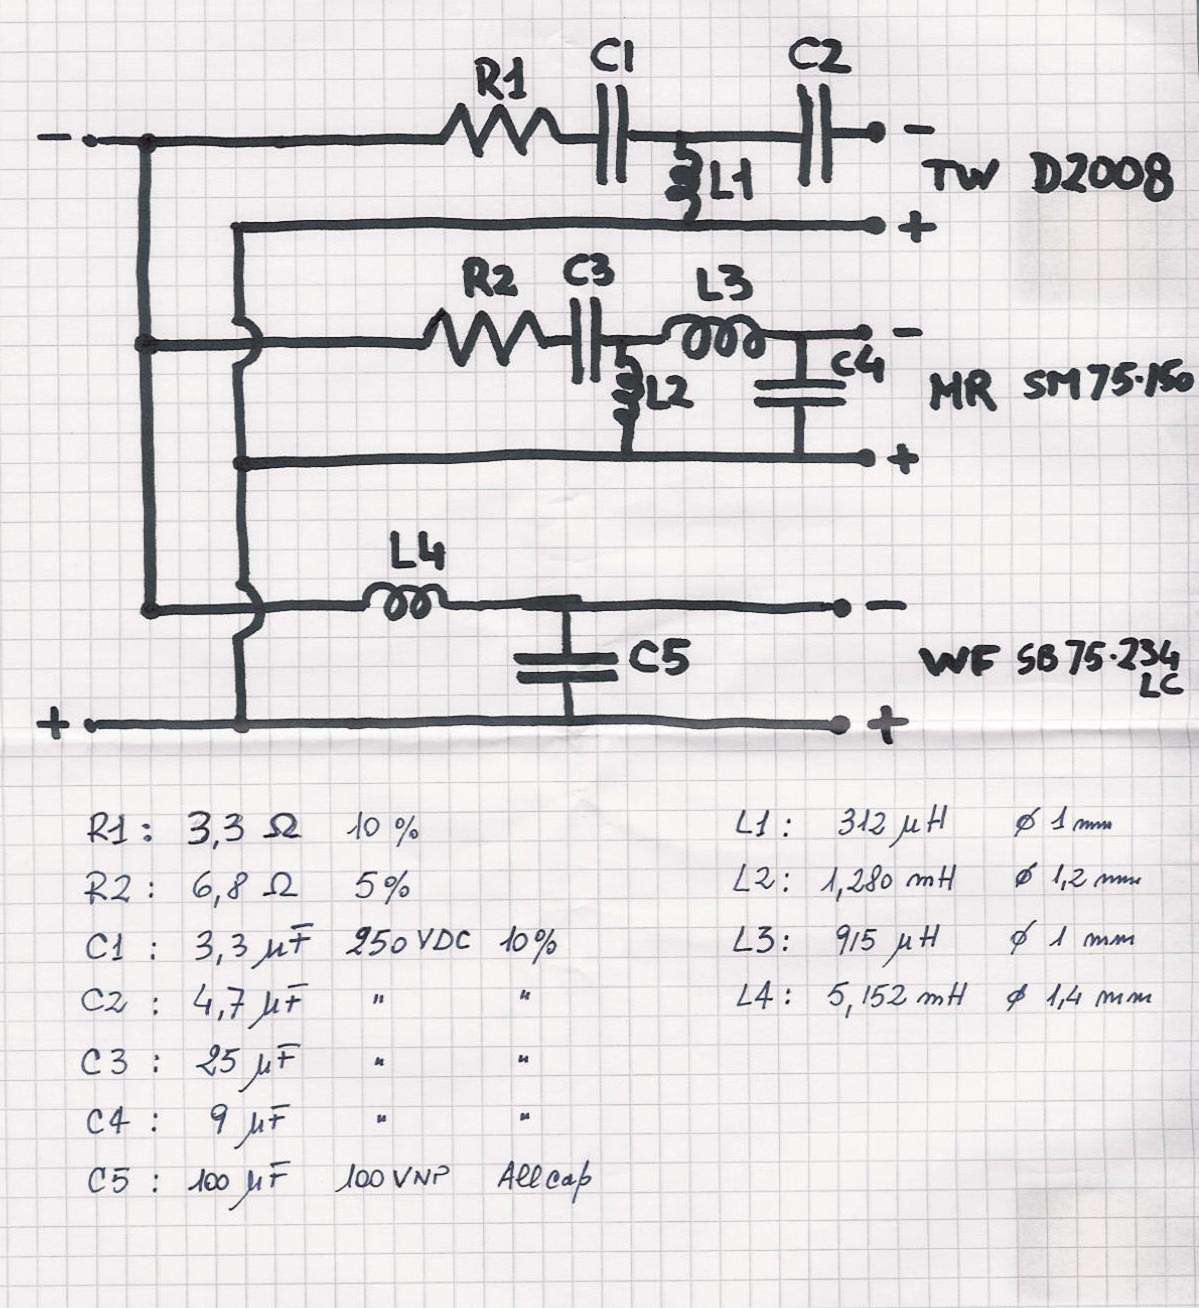 C1 C2
R1
- -
L1 TW D2008
+
R2 C3 L3
-
C4
L2 MR SM75.150
+
L4
-
C5 WF SB75.234
LC
+ +
R1: 3,3 Ω 10% L1: 312 µH ø 1 mm
R2: 6,8 Ω 5% L2: 1,280 mH ø 1,2 mm
C1: 3,3 µF 250 VDC 10% L3: 915 µH ø 1 mm
C2: 4,7 µF " " L4: 5,152 mH ø 1,4 mm
C3: 25 µF " "
C4: 9 µF " "
C5: 100 µF 100 VNP All cap